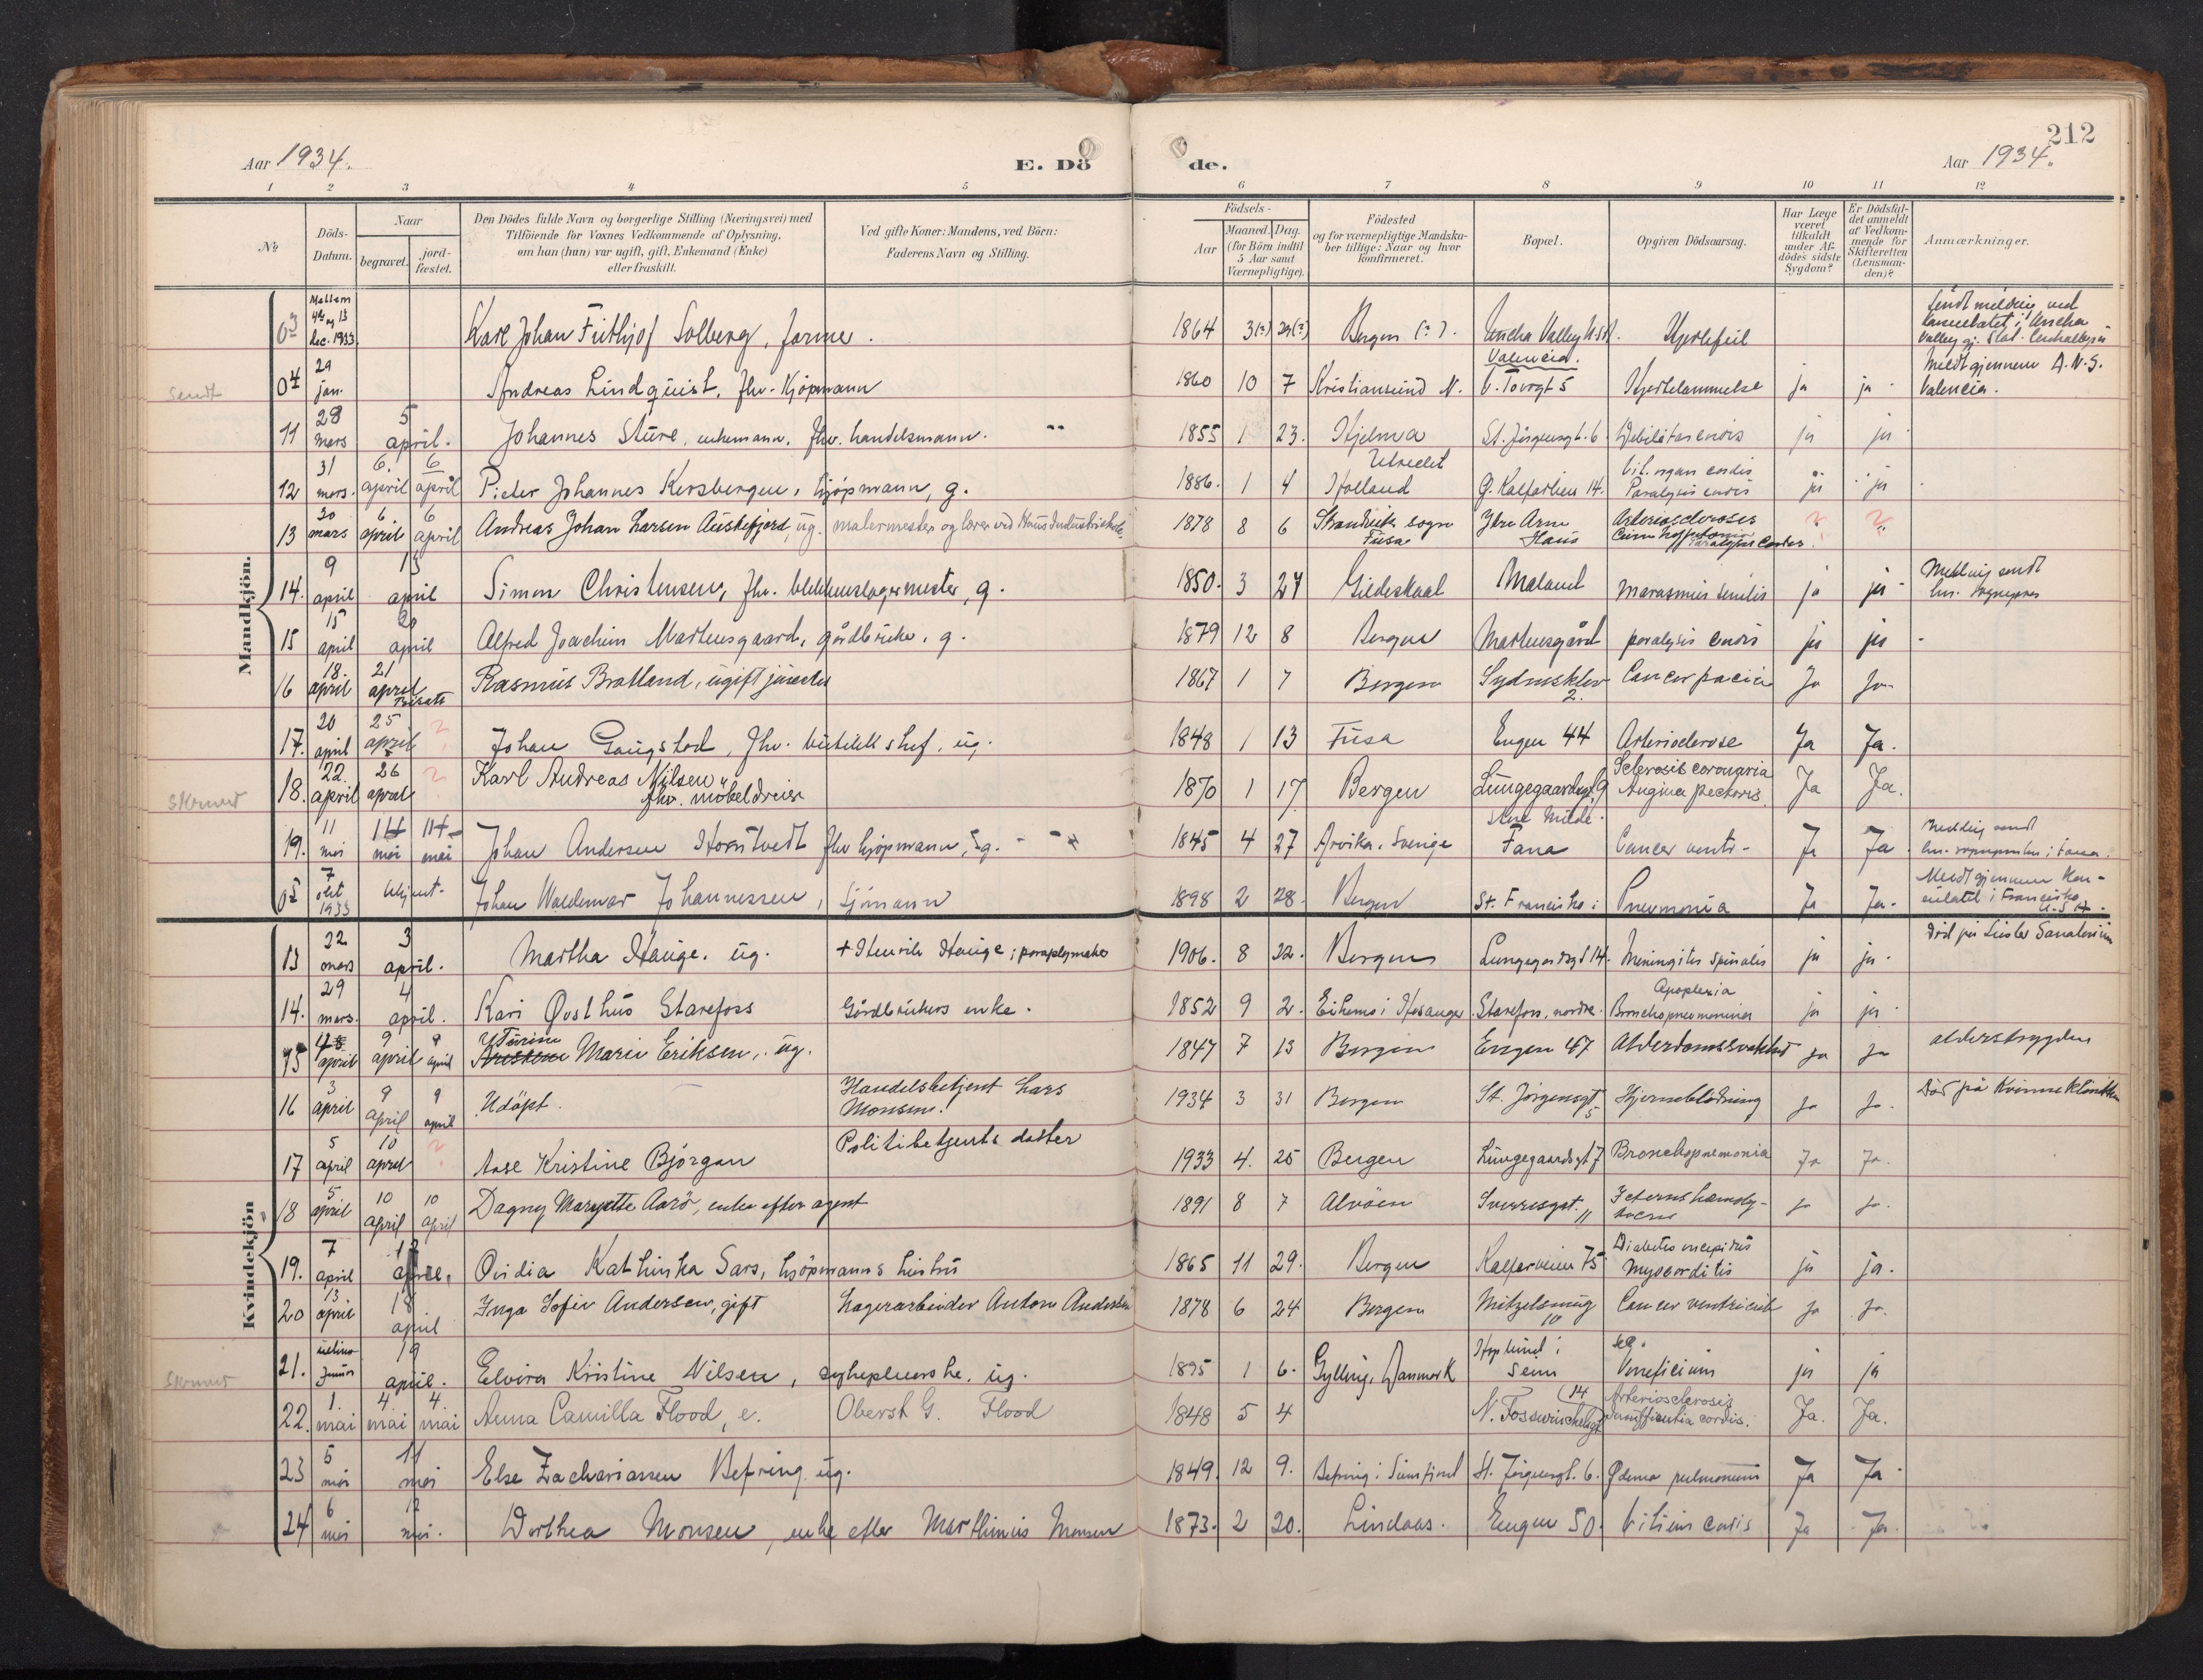 212
Aar 1934. E. Dö de. Aar 1934.
1 2 3 4 5 6 7 8 9 10 11 12
No Döds-Datum. Naar begravet. jord-fæstet. Den Dödes fulde Navn og borgerlige Stilling (Næringsvei) med Tilföiende for Voxnes Vedkommende af Oplysning, om han (hun) var ugift, gift, Enkemand (Enke) eller fraskilt. Ved gifte Koner: Mandens, ved Börn: Faderens Navn og Stilling. Födsels- Aar Maaned. Dag. (for Börn indtil 5 Aar samt Værnepligtige). Födested og for værnepligtige Mandska-ber tillige: Naar og hvor konfirmeret. Bopæl. Opgiven Dödsaarsag. Har Læge været tilkaldt under Af-dödes sidste Sygdom? Er Dödsfal-det anmeldt af Vedkom-mende for Skifteretten (Lensman-den)? Anmærkninger.
Mandkjön.
03 Mellem 4de og 13 dec. 1933 Karl Johan Frithjof Solberg, farmer. 1864 3(?) 29(?) Bergen (?). Hjertefeil
Sendt 04 29 jan. Andreas Lindquist, fhv. Kjöpmann 1860 10 7 Kristiansund N. V. Torvgt 5 Hjertelammelse ja ja Meldt gjennem A.N.S. Valencia.
11 28 mars 5 april. Johannes Sture, enkemann, fhv. handelsmann. 1855 1 23. Hjelma St. Jörgensgt. 6 ja ja
12 31 mars. 6. april 6 april Pieter Johannes Kersbergen, kjöpmann, g. 1886. 1 4 Utrecht Holland G. Kalfarlien 14. Vit. organ cordis Paralysis cordis ja ja
13 30 mars 6 april 6 april Andreas Johan Larsen Austefjord, ug. malermester og lærer ved Haus Industriskole 1878 8 6 Strandvik sogn Fusa Ytre Arne Haus Arteriosclerosis ? ?
14. 9 april 13 april Simon Christensen, fhv. blikkenslagermester, g. 1850. 3 27 Gildeskaal Maland Marasmus senilis ja ja Melding sendt hr. sogneprest
15 15 april 20 april Alfred Joachim Martensgaard, gårdbruker, g. 1879 12 8 Bergen Martensgård paralysis cordis ja ja
16 18. april 21 april Rasmus Bratland, ugift 1867 1 7 Bergen Sydnesklev 2. Ja Ja
17. 20 april 25 april ? Johan Gaugstad, fhv. ug. 1848 1 13 Fusa Engen 44 Arteriosclerose Ja Ja.
Skrevet 18. 22. april 26 april ? Karl Andreas Nilsen fhv. möbeldreier 1870 1 17 Bergen Lungegaardsgt. 9 Sclerosis coronaria Angina pectoris. Ja Ja.
19. 11 mai 14 mai 14 mai Johan Andersen fhv kjöpmann, ug. 1845 4 27 Arvika, Sverige Milde Fana Cancer ventr. Ja Ja Melding sendt hr. sogneprest i Fana.
05 7 okt 1933 Johan Waldemar Johannessen, Sjömann 1898 2 28 Bergen St. Francisko Pneumonia Ja Ja. Meldt gjennem Kon-sulatet i Francisko U.S.A.
Kvindekjön
13 22 mars 3 april. Martha Hauge. ug. + Henrik Hauge; paraplymaker 1906. 8 22. Bergen Lungegardsgt 14. Meningitis spinalis ja ja. Död på Luster Sanatorium
14. 29 mars. 4 april. Kari Østhus Starefoss Gårdbrukers enke. 1852 9 2. Eikemo i Hosanger Starefoss, nordre. Apoplexia Bronchopneumonia ja ja
15 april 9 april 9 april Turine Marie Eriksen, ug. 1847 7 13 Bergen Engen 47 Alderdomssvakhet Ja Ja alderstrygden
16 3 april 9 april 9 april Udöpt. Handelsbetjent Lars Monsen. 1934 3 31 Bergen St. Jörgensgt 5 Hjerneblödning Ja Ja. Död på Kvinneklinikken
17 5 april 10 april ? Aase Kristine Björgan Politibetjents datter 1933 4. 25 Bergen Lungegaardsgt 7 Bronchopneumonia Ja Ja.
18 5 april 10 april 10 april Dagny Margrethe Aarö, enke efter agent 1891 8 7 Alvöen Sverresgt. 11 Ja Ja.
19. 7 april 12 april. Ovidia Kathinka Sars, kjöpmanns hustru 1865 11 29. Bergen Kalfarveien 75 Diabetes Myocarditis ja ja.
20 13 april 18 april Inga Sofie Andersen, gift Lagerarbeider Anton Andersen 1878 6 24 Bergen Mitzelsmug 10 Cancer ventriculi Ja Ja.
Skrevet 21. 19 april. Elvira Kristine Nilsen, sykepleierske. ug. 1895 1 6. Gylling, Danmark Veneficium ja ja
22. 1. mai 4. mai 4. mai Anna Camilla Flood, e. Oberst G. Flood 1848 5 4 N. Fosswinckelsgt 14 Arteriosclerosis Insufficientia cordis. Ja. Ja.
23 5 mai 11 mai Else Zachariassen Befring ug. 1849. 12 9. Befring i Sunnfjord St. Jörgensgt. 6. Ødema pulmonum Ja Ja
24 6 mai 12 mai. Dorthea Monsen, enke efter Marthinus Monsen 1873. 2 20. Lindaas. Engen 50. Vitium cordis Ja Ja